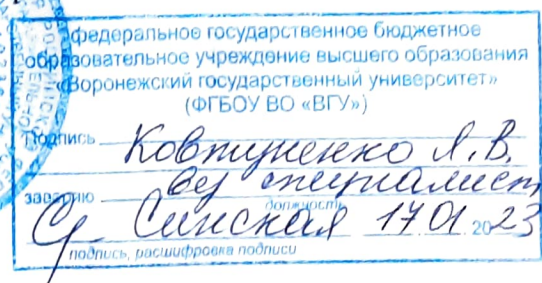 федеральное государственное бюджетное
образовательное учреждение высшего образования
«Воронежский государственный университет»
(ФГБОУ ВО «ВГУ»)
Подпись Ковтуненко Л.В.
заверяю вед специалист
должность
Синская 17 01 2023
подпись, расшифровка подписи